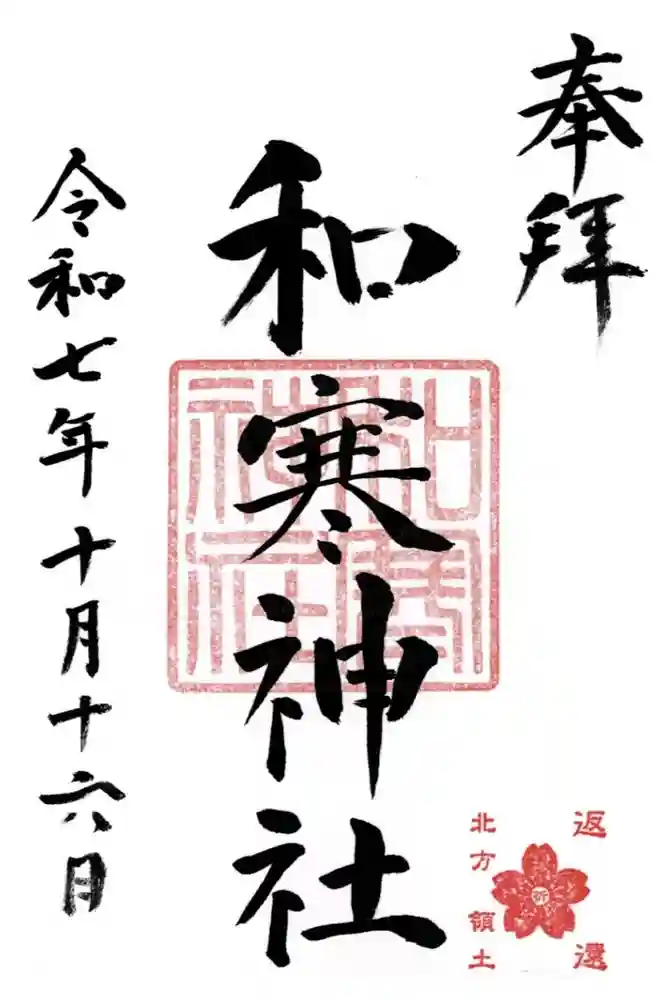 奉拝
和寒神社
和寒神社
令和七年十月十六日
返還
祈
北方領土